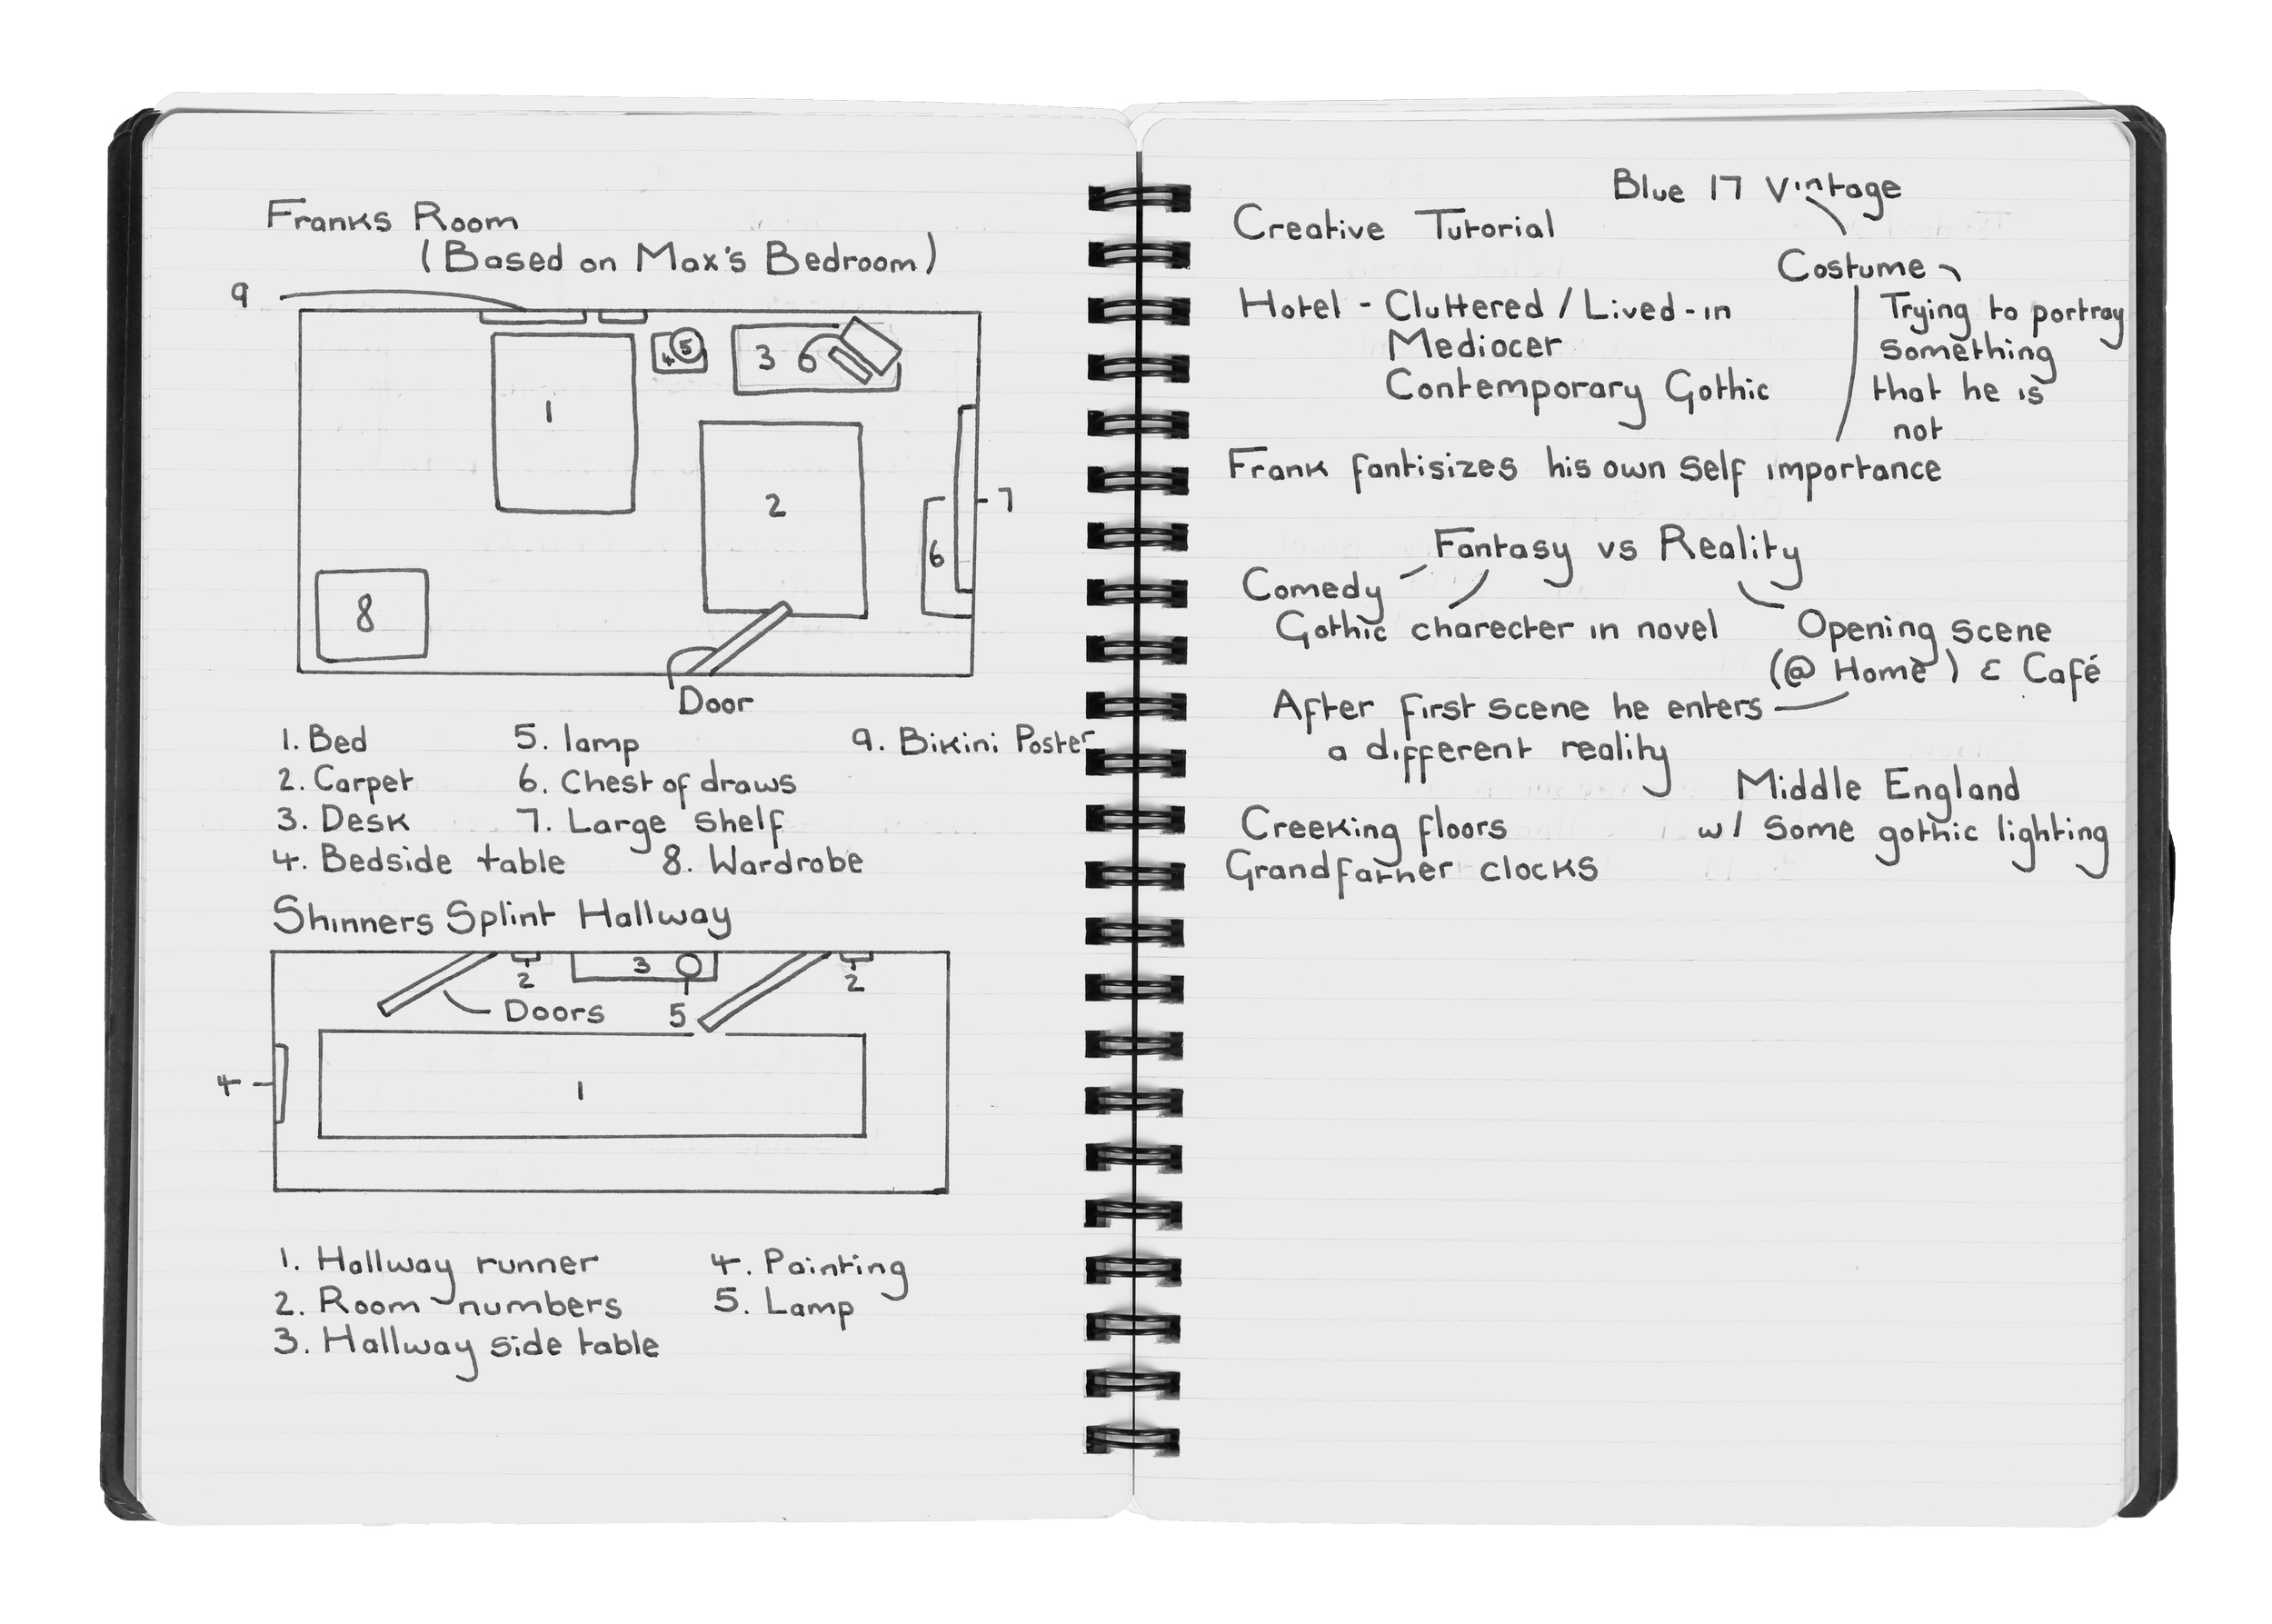 Franks Room
(Based on Max's Bedroom)
9
1
4
5
3 6
2
7
6
8
Door
1. Bed
5. lamp
9. Bikini Poster
2. Carpet
6. Chest of draws
3. Desk
7. Large shelf
4. Bedside table
8. Wardrobe
Shinners Splint Hallway
2
3
2
Doors
5
4
1
1. Hallway runner
4. Painting
2. Room numbers
5. Lamp
3. Hallway side table
Blue 17 Vintage
Creative Tutorial
Costume
Hotel - Cluttered / Lived-in
Mediocer
Contemporary Gothic
Trying to portray
something
that he is
not
Frank fantisizes his own self importance
Fantasy vs Reality
Comedy
Gothic charecter in novel
Opening scene
(@ Home) & Café
After first scene he enters
a different reality
Middle England
w/ some gothic lighting
Creeking floors
Grandfather clocks